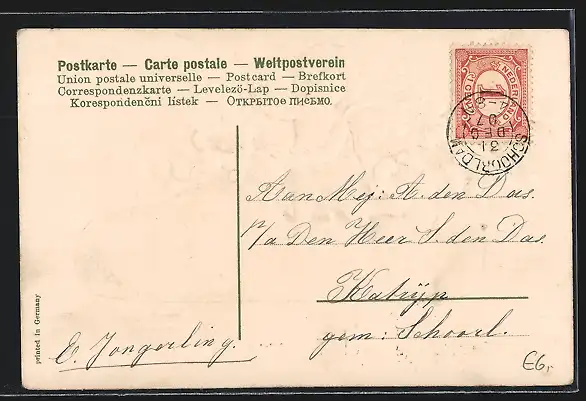 Postkarte — Carte postale — Weltpostverein
Union postale universelle — Postcard — Brefkort
Correspondenzkarte — Levelező-Lap — Dopisnice
Korespondenční lístek — Открытое письмо.
NEDERLAND
1
SCHOORLDAM
31 DEC 07
Aan Mej: A. den Das.
p/a Den Heer S. den Das.
Katrijp
gem: Schoorl.
E. Jongerling.
printed in Germany
€6,-